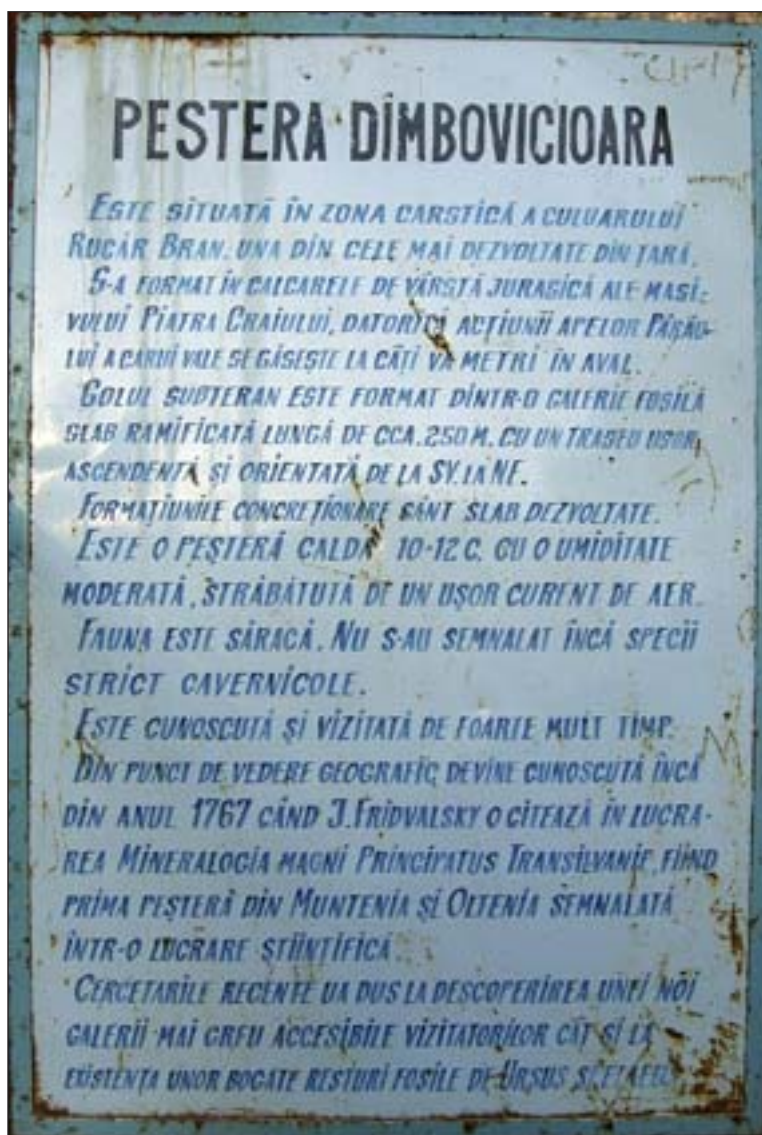 PESTERA DÎMBOVICIOARA
ESTE SITUATĂ ÎN ZONA CARSTICĂ A CULUARULUI
RUCĂR BRAN. UNA DIN CELE MAI DEZVOLTATE DIN ȚARĂ.
S-A FORMAT ÎN CALCARELE DE VÂRSTĂ JURASICĂ ALE MASI-
VULUI PIATRA CRAIULUI, DATORITĂ ACȚIUNII APELOR PÂRÂU-
LUI A CARUI VALE SE GĂSEȘTE LA CÂȚI VA METRI ÎN AVAL.
GOLUL SUBTERAN ESTE FORMAT DINTR-O GALERIE FOSILĂ
SLAB RAMIFICATĂ LUNGĂ DE CCA. 250 M. CU UN TRASEU UȘOR
ASCENDENTĂ ȘI ORIENTATĂ DE LA SV. LA NE.
FORMAȚIUNILE CONCREȚIONARE SÂNT SLAB DEZVOLTATE.
ESTE O PEȘTERĂ CALDĂ 10-12 C. CU O UMIDITATE
MODERATĂ, STRĂBĂTUTĂ DE UN UȘOR CURENT DE AER.
FAUNA ESTE SĂRACĂ. NU S-AU SEMNALAT ÎNCĂ SPECII
STRICT CAVERNICOLE.
ESTE CUNOSCUTĂ ȘI VIZITATĂ DE FOARTE MULT TIMP.
DIN PUNCT DE VEDERE GEOGRAFIC DEVINE CUNOSCUTĂ ÎNCĂ
DIN ANUL 1767 CÂND J. FRIDVALSKY O CITEAZĂ ÎN LUCRA-
REA MINERALOGIA MAGNI PRINCIPATUS TRANSILVANIE, FIIND
PRIMA PEȘTERĂ DIN MUNTENIA ȘI OLTENIA SEMNALATĂ
ÎNTR-O LUCRARE ȘTIINȚIFICĂ.
CERCETARILE RECENTE UA DUS LA DESCOPERIREA UNEI NOI
GALERII MAI GREU ACCESIBILE VIZITATORILOR CÂT ȘI LA
EXISTENȚA UNOR BOGATE RESTURI FOSILE DE URSUS